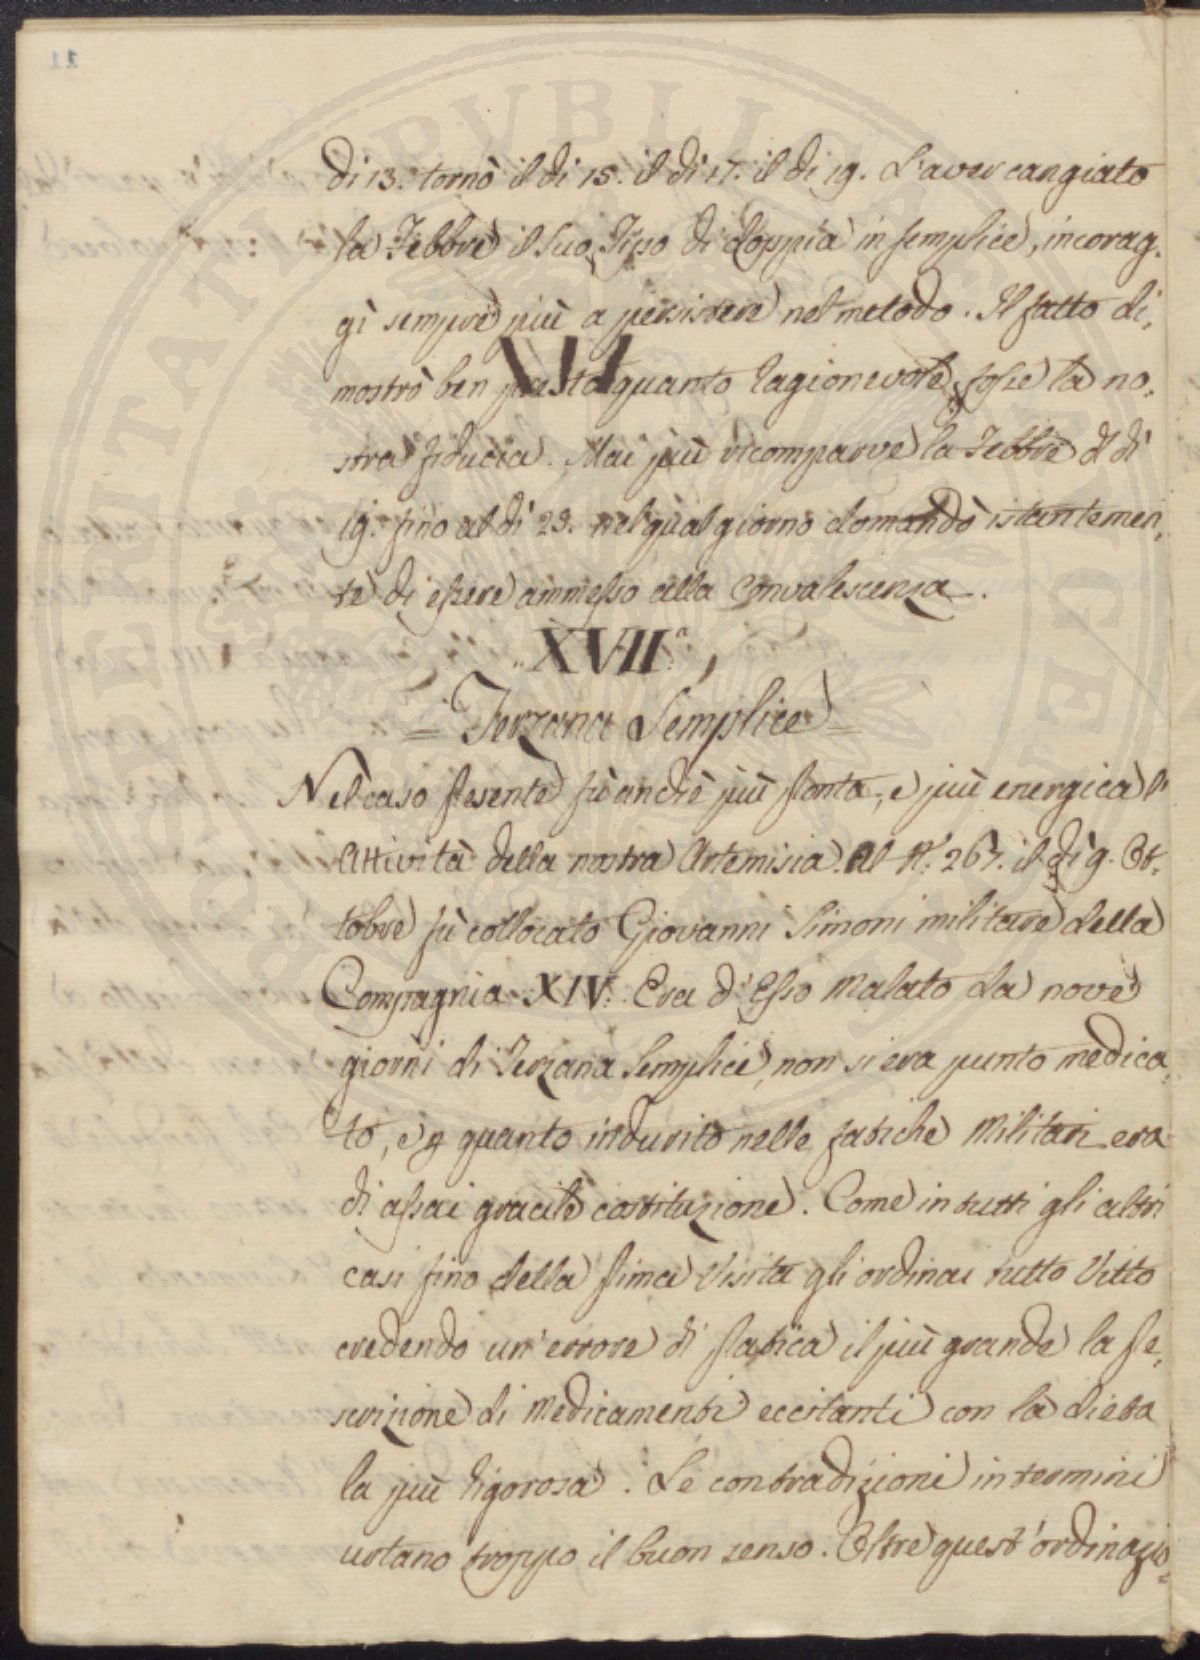 di 13. tornò il di 15. il di 17. il di 19. L'aver cangiato
la Febbre il suo Tipo di doppia in semplice, incorag-
gì sempre più a persistere nel metodo. Il fatto di-
mostrò ben presto quanto ragionevole fosse la no-
stra fiducia. Mai più ricomparve la Febbre dl dì
19. fino al dì 23. nel qual giorno domandò istantemen-
te di essere ammesso alla Convalescenza.
XVII.ª
= Terzana Semplice =
Nel caso presente fù anche più pronta, e più energica l'
Attività della nostra Artemisia. Al N.º 267. il dì 9. Ot-
tobre fù collocato Giovanni Simoni militare della
Compagnia XIV. Era d'Esso Malato da nove
giorni di Terzana Semplice, non si era punto medica-
to, e p quanto indurito nelle fatiche Militari era
di assai gracile costituzione. Come in tutti gli altri
casi fino della prima Visita gli ordinai tutto Vitto
credendo un'errore di pratica il più grande la pre-
scrizione di Medicamenti eccitanti con la dieta
la più rigorosa. Le contradizioni in termini
urtano troppo il buon senso. Oltre quest'ordinazio-